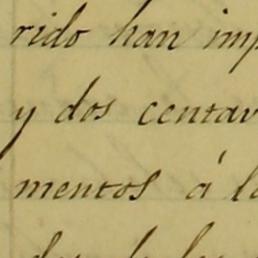 rido han imp
y dos centav
mentos á lo